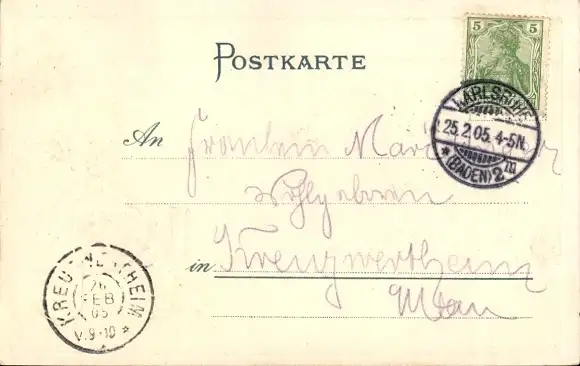 POSTKARTE
5 5
KARLSRUHE
25.2.05. 4-5N.
* (BADEN) 2
An Fräulein
Wohlgeboren
in Kreuzwertheim
Main
KREUZWERTHEIM
26
FEB
05
V.9-10 *